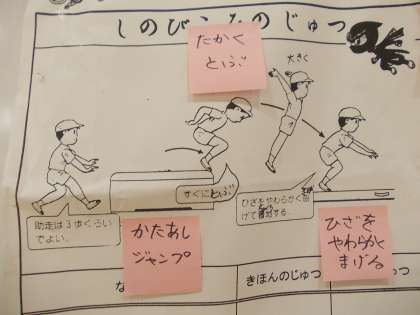 しのびこみのじゅつ
たかく
とぶ
大きく
すぐにとぶ
助走は3歩くらい
でよい。
ひざをやわらかく曲
げて着地する。
かたあし
ジャンプ
ひざを
やわらかく
まげる
な
きほんのじゅつ
つ